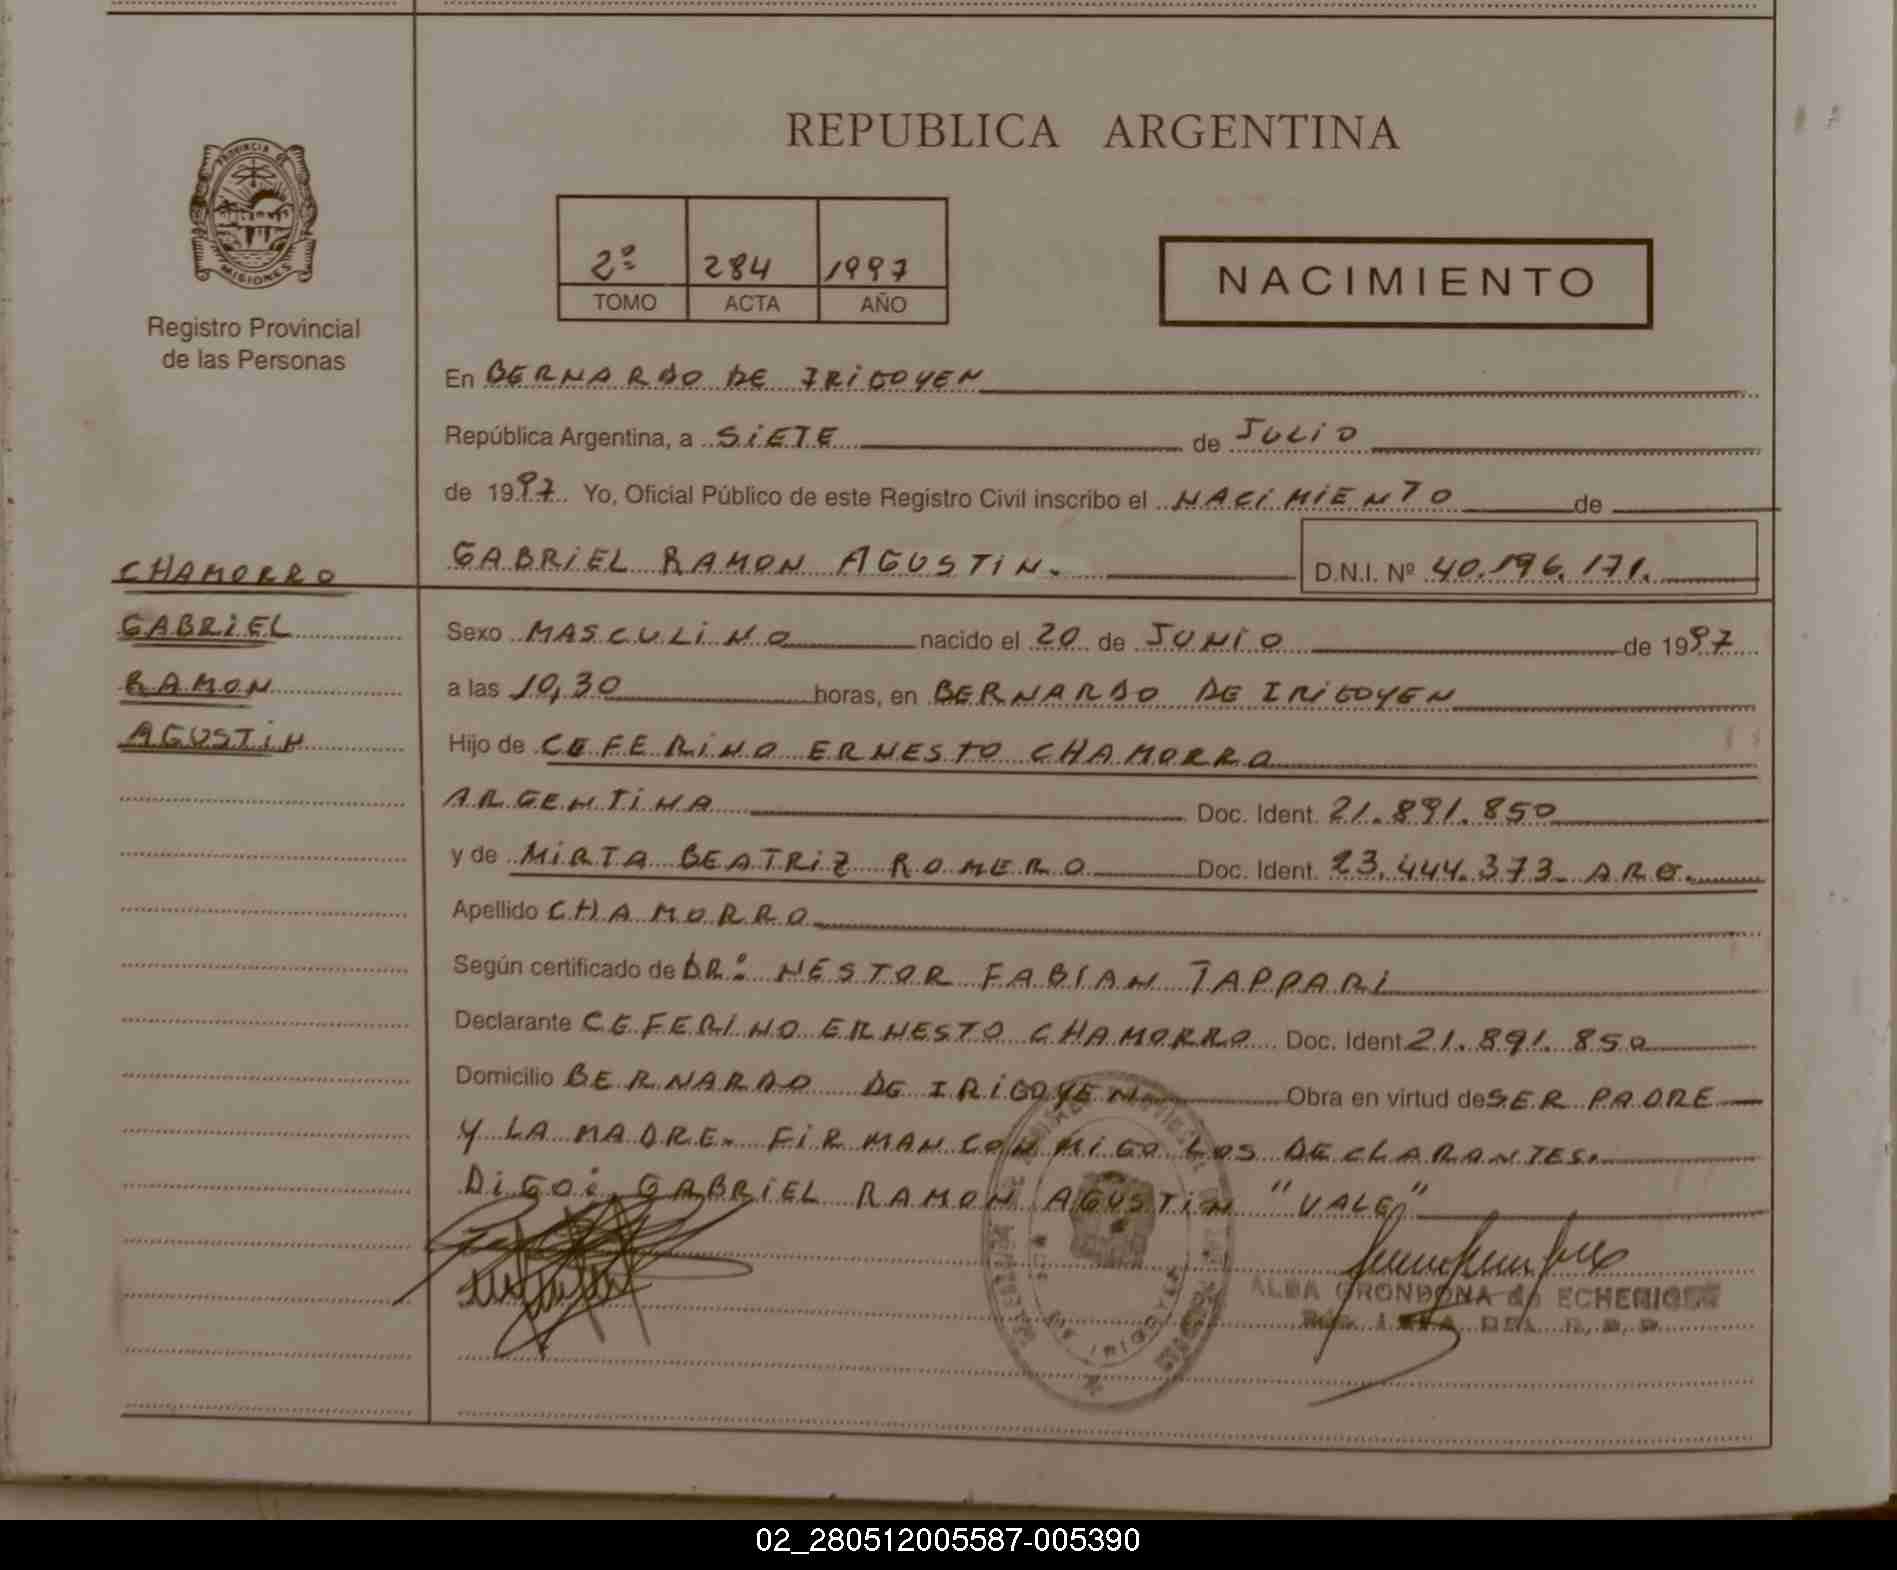 REPUBLICA ARGENTINA
PROVINCIA DE
MISIONES
Registro Provincial
de las Personas
2º 284 1997
TOMO ACTA AÑO
NACIMIENTO
En BERNARDO DE IRIGOYEN
República Argentina, a SIETE de JULIO
de 1997. Yo, Oficial Público de este Registro Civil inscribo el NACIMIENTO de
GABRIEL RAMON AGUSTIN. D.N.I. Nº 40.196.171.
CHAMORRO
GABRIEL
RAMON
AGUSTIN
Sexo MASCULINO nacido el 20 de JUNIO de 1997
a las 10,30 horas, en BERNARDO DE IRIGOYEN
Hijo de CEFERINO ERNESTO CHAMORRO
ARGENTINA Doc. Ident. 21.891.850
y de MIRTA BEATRIZ ROMERO Doc. Ident. 23.444.373. ARG.
Apellido CHAMORRO
Según certificado de DR: NESTOR FABIAN TAPPARI
Declarante CEFERINO ERNESTO CHAMORRO Doc. Ident. 21.891.850
Domicilio BERNARDO DE IRIGOYEN Obra en virtud de SER PADRE
Y LA MADRE. FIRMAN CONMIGO LOS DECLARANTES.
DIGO: GABRIEL RAMON AGUSTIN "VALE"
DE IRIGOYEN
ALBA GRONDONA de ECHERIGER
02_280512005587-005390